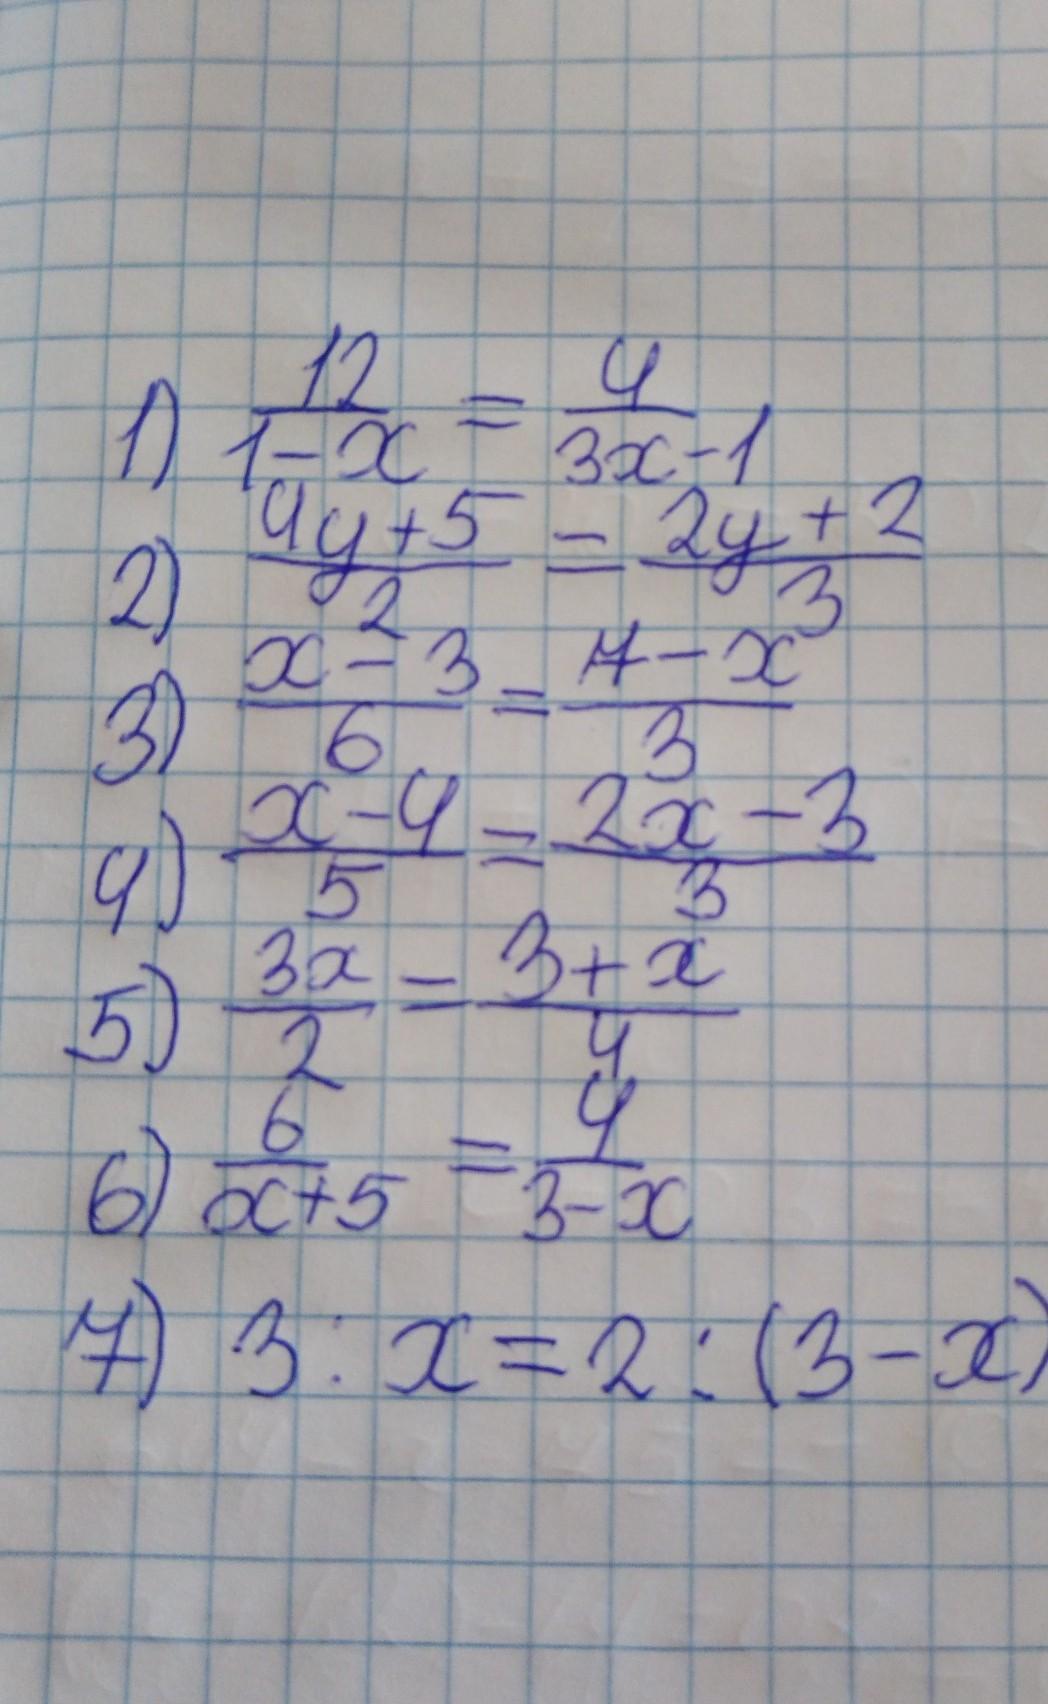 1) 12/(1-x) = 4/(3x-1)
2) (4y+5)/2 = (2y+2)/3
3) (x-3)/6 = (7-x)/3
4) (x-4)/5 = (2x-3)/3
5) 3x/2 - (3+x)/4
6) 6/(x+5) = 4/(3-x)
7) 3 : x = 2 : (3-x)